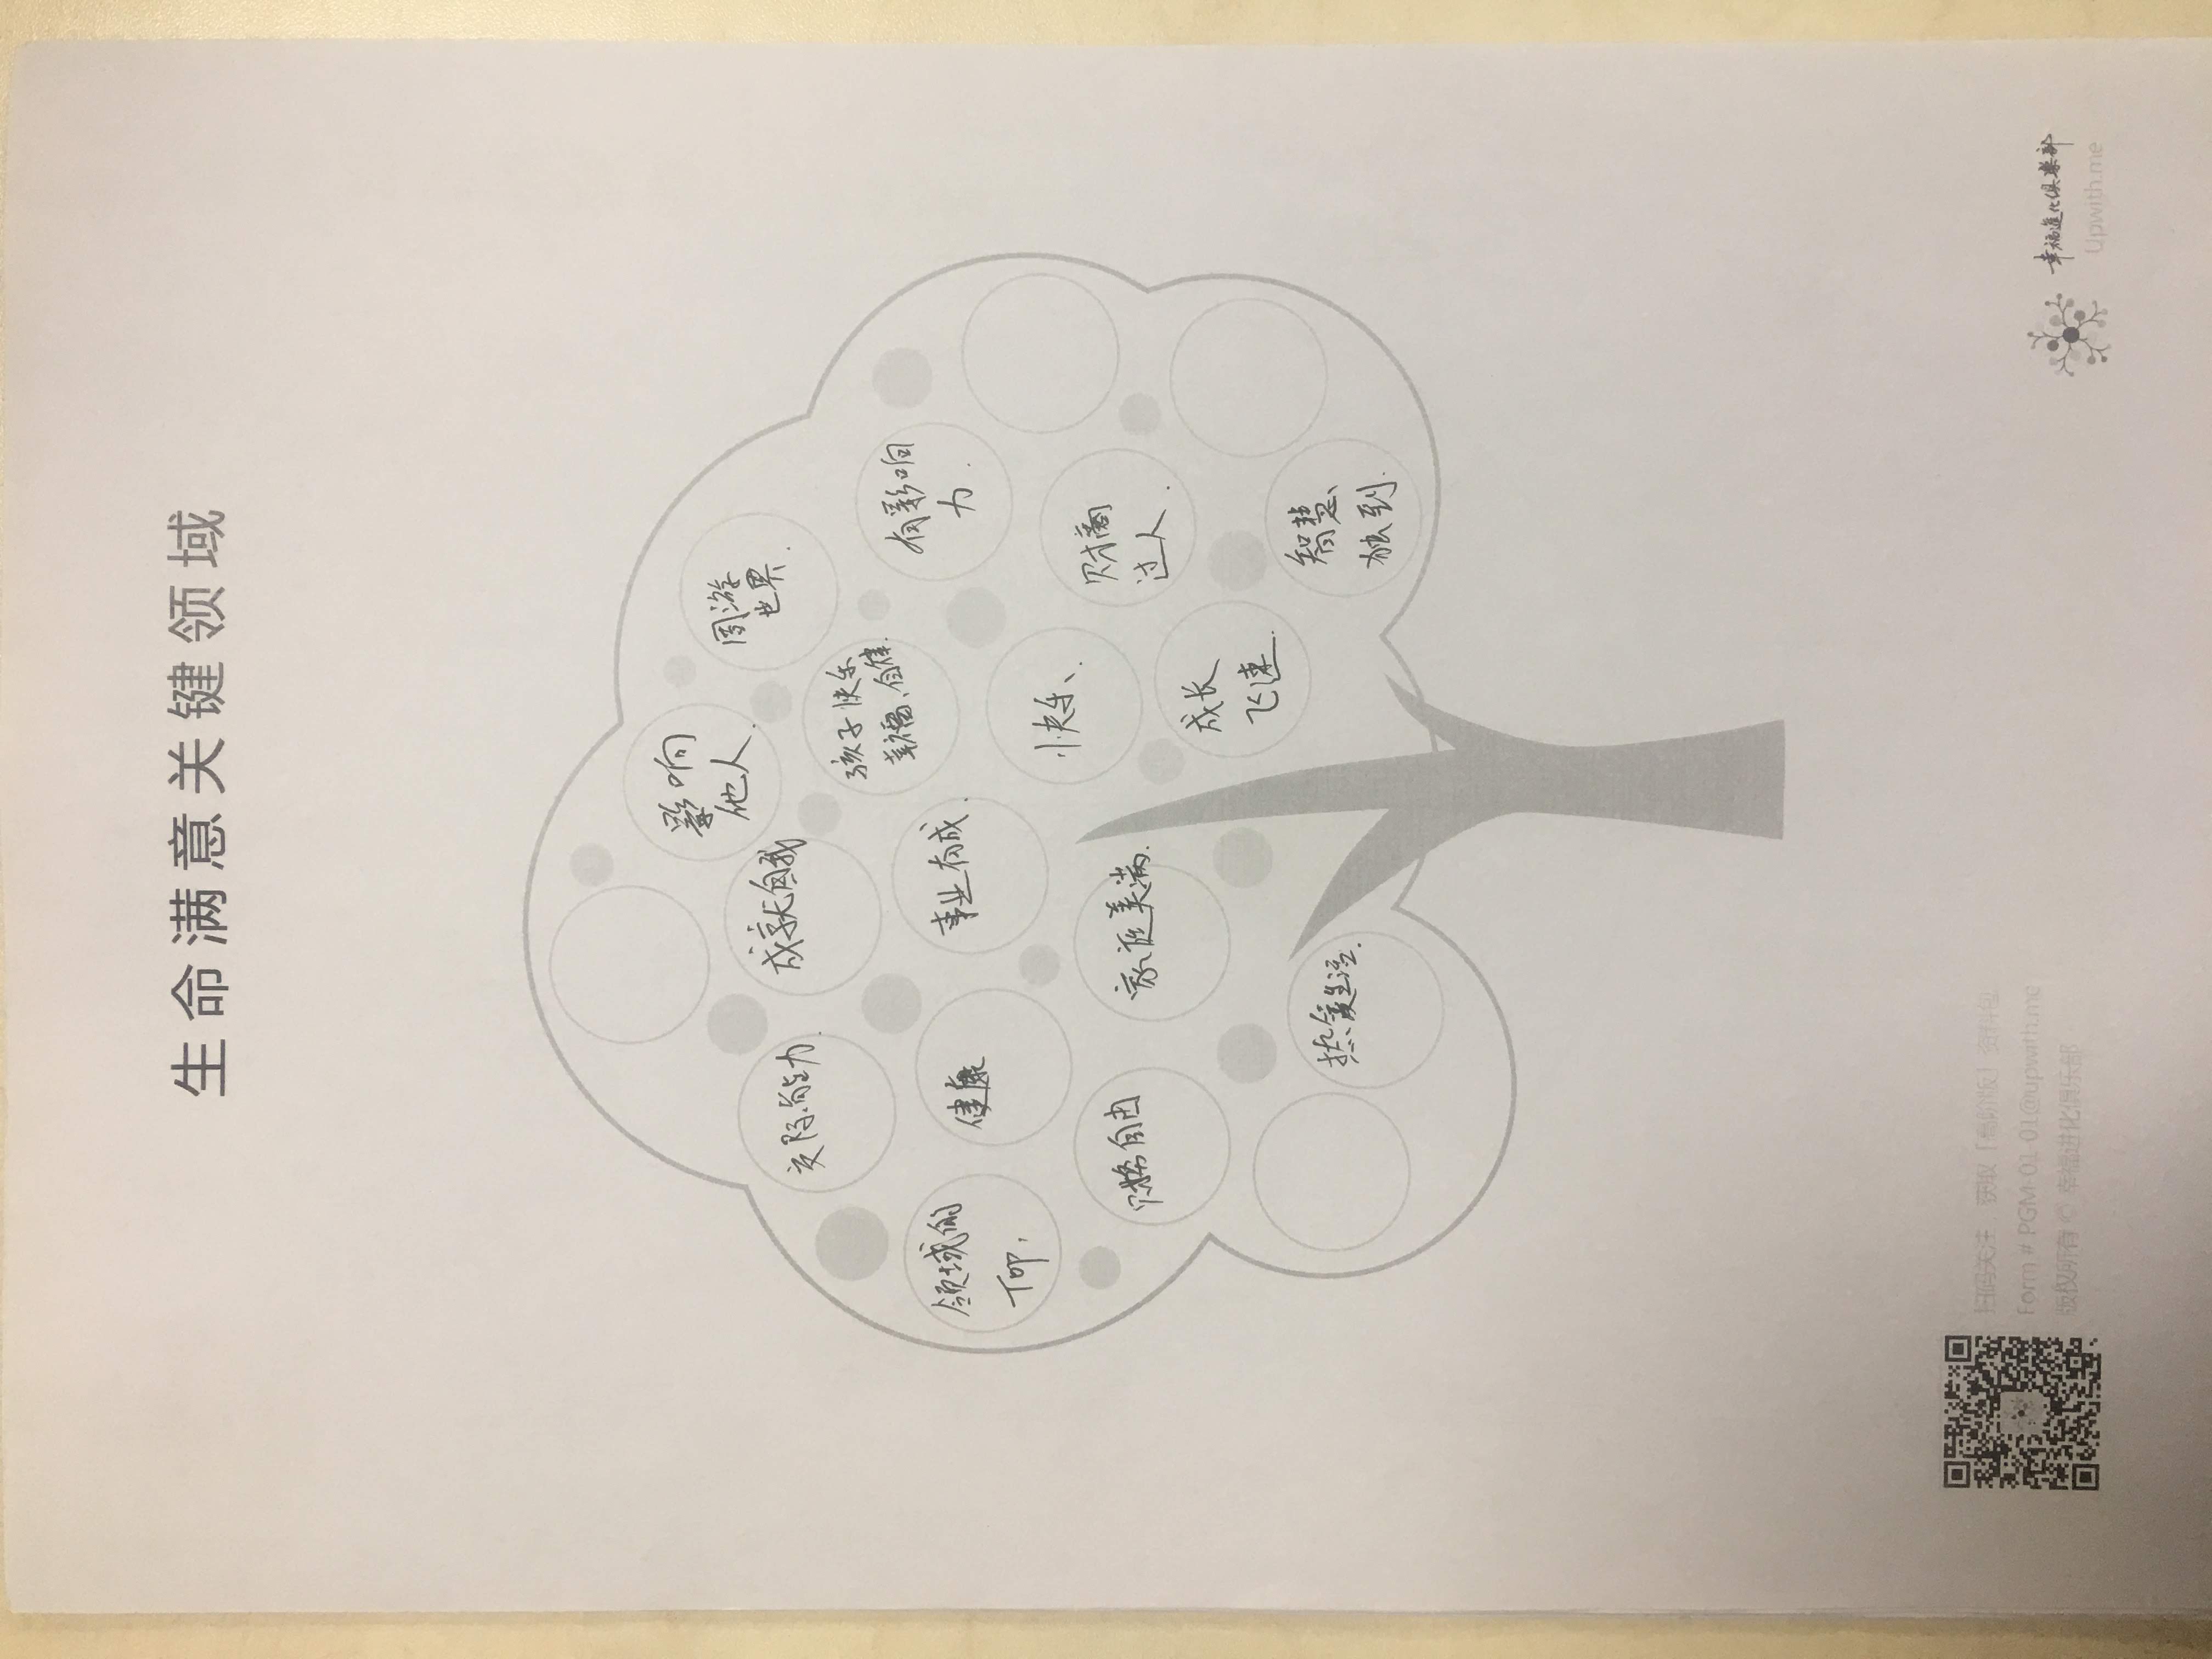 生命满意关键领域
影响
他人.
周游
世界.
交际能力.
成就自我
孩子快乐
幸福、自律.
有影响
力.
领域的
TOP,
健康
事业有成.
快乐、
财商
过人.
财务自由
家庭美满.
成长
飞速.
热爱生活.
智慧、
独到.
扫码关注，获取「高阶版」资料包
Form # PGM-01-01@upwith.me
版权所有 © 幸福进化俱乐部
幸福進化俱樂部
Upwith.me